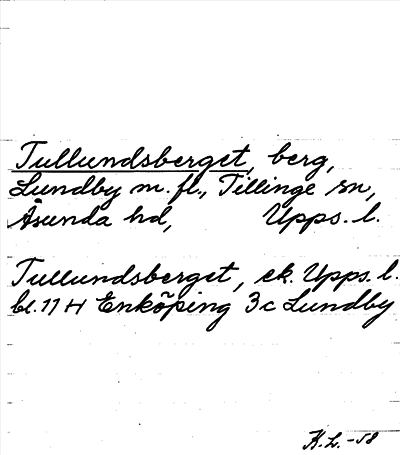 Tullundsberget, berg,
Lundby m. fl., Tillinge sn,
Åsunda hd, Upps. l.
Tullundsberget, ek. Upps. l.
bl. 11 H Enköping 3c Lundby
K.L. -58